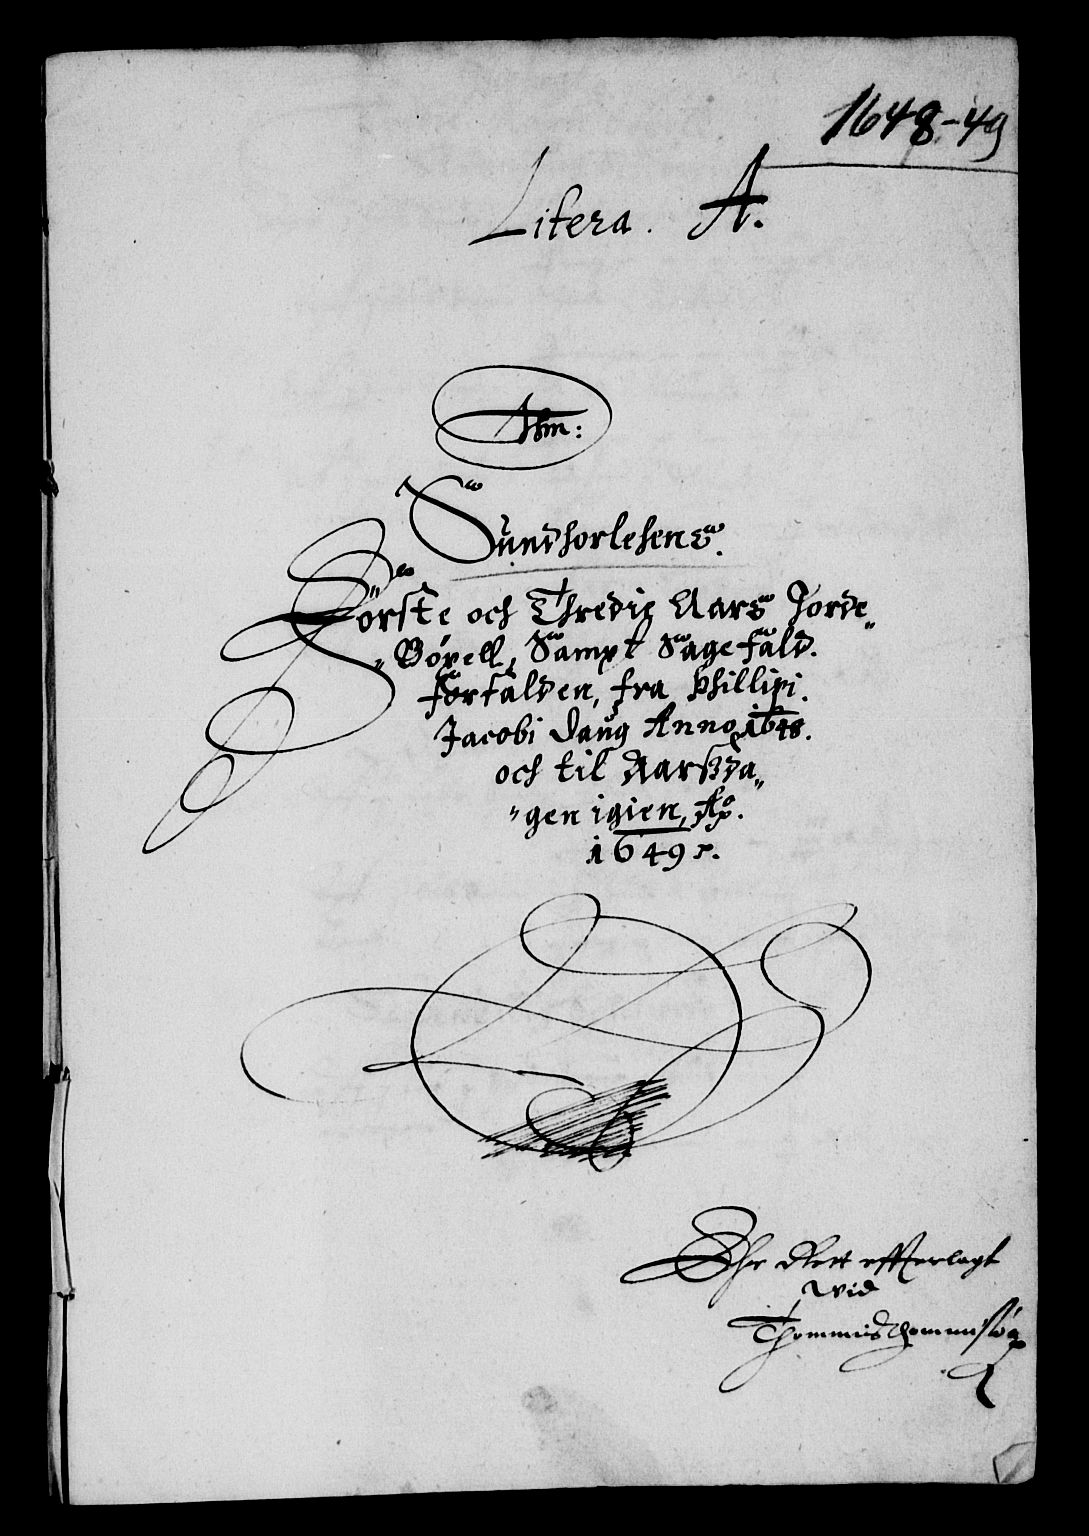 1648-49
Litera. A.
Sundhorlehens.
Förste och Thredie Aars Jorde„
„Bögell, Sampt Sagefald.
forfalden, fra Phillipi.
Jacobi daug Anno 1648.
och til Aarßda„
„gen igien, Ao.
1649
Rett effterlagt
vid
Thommis